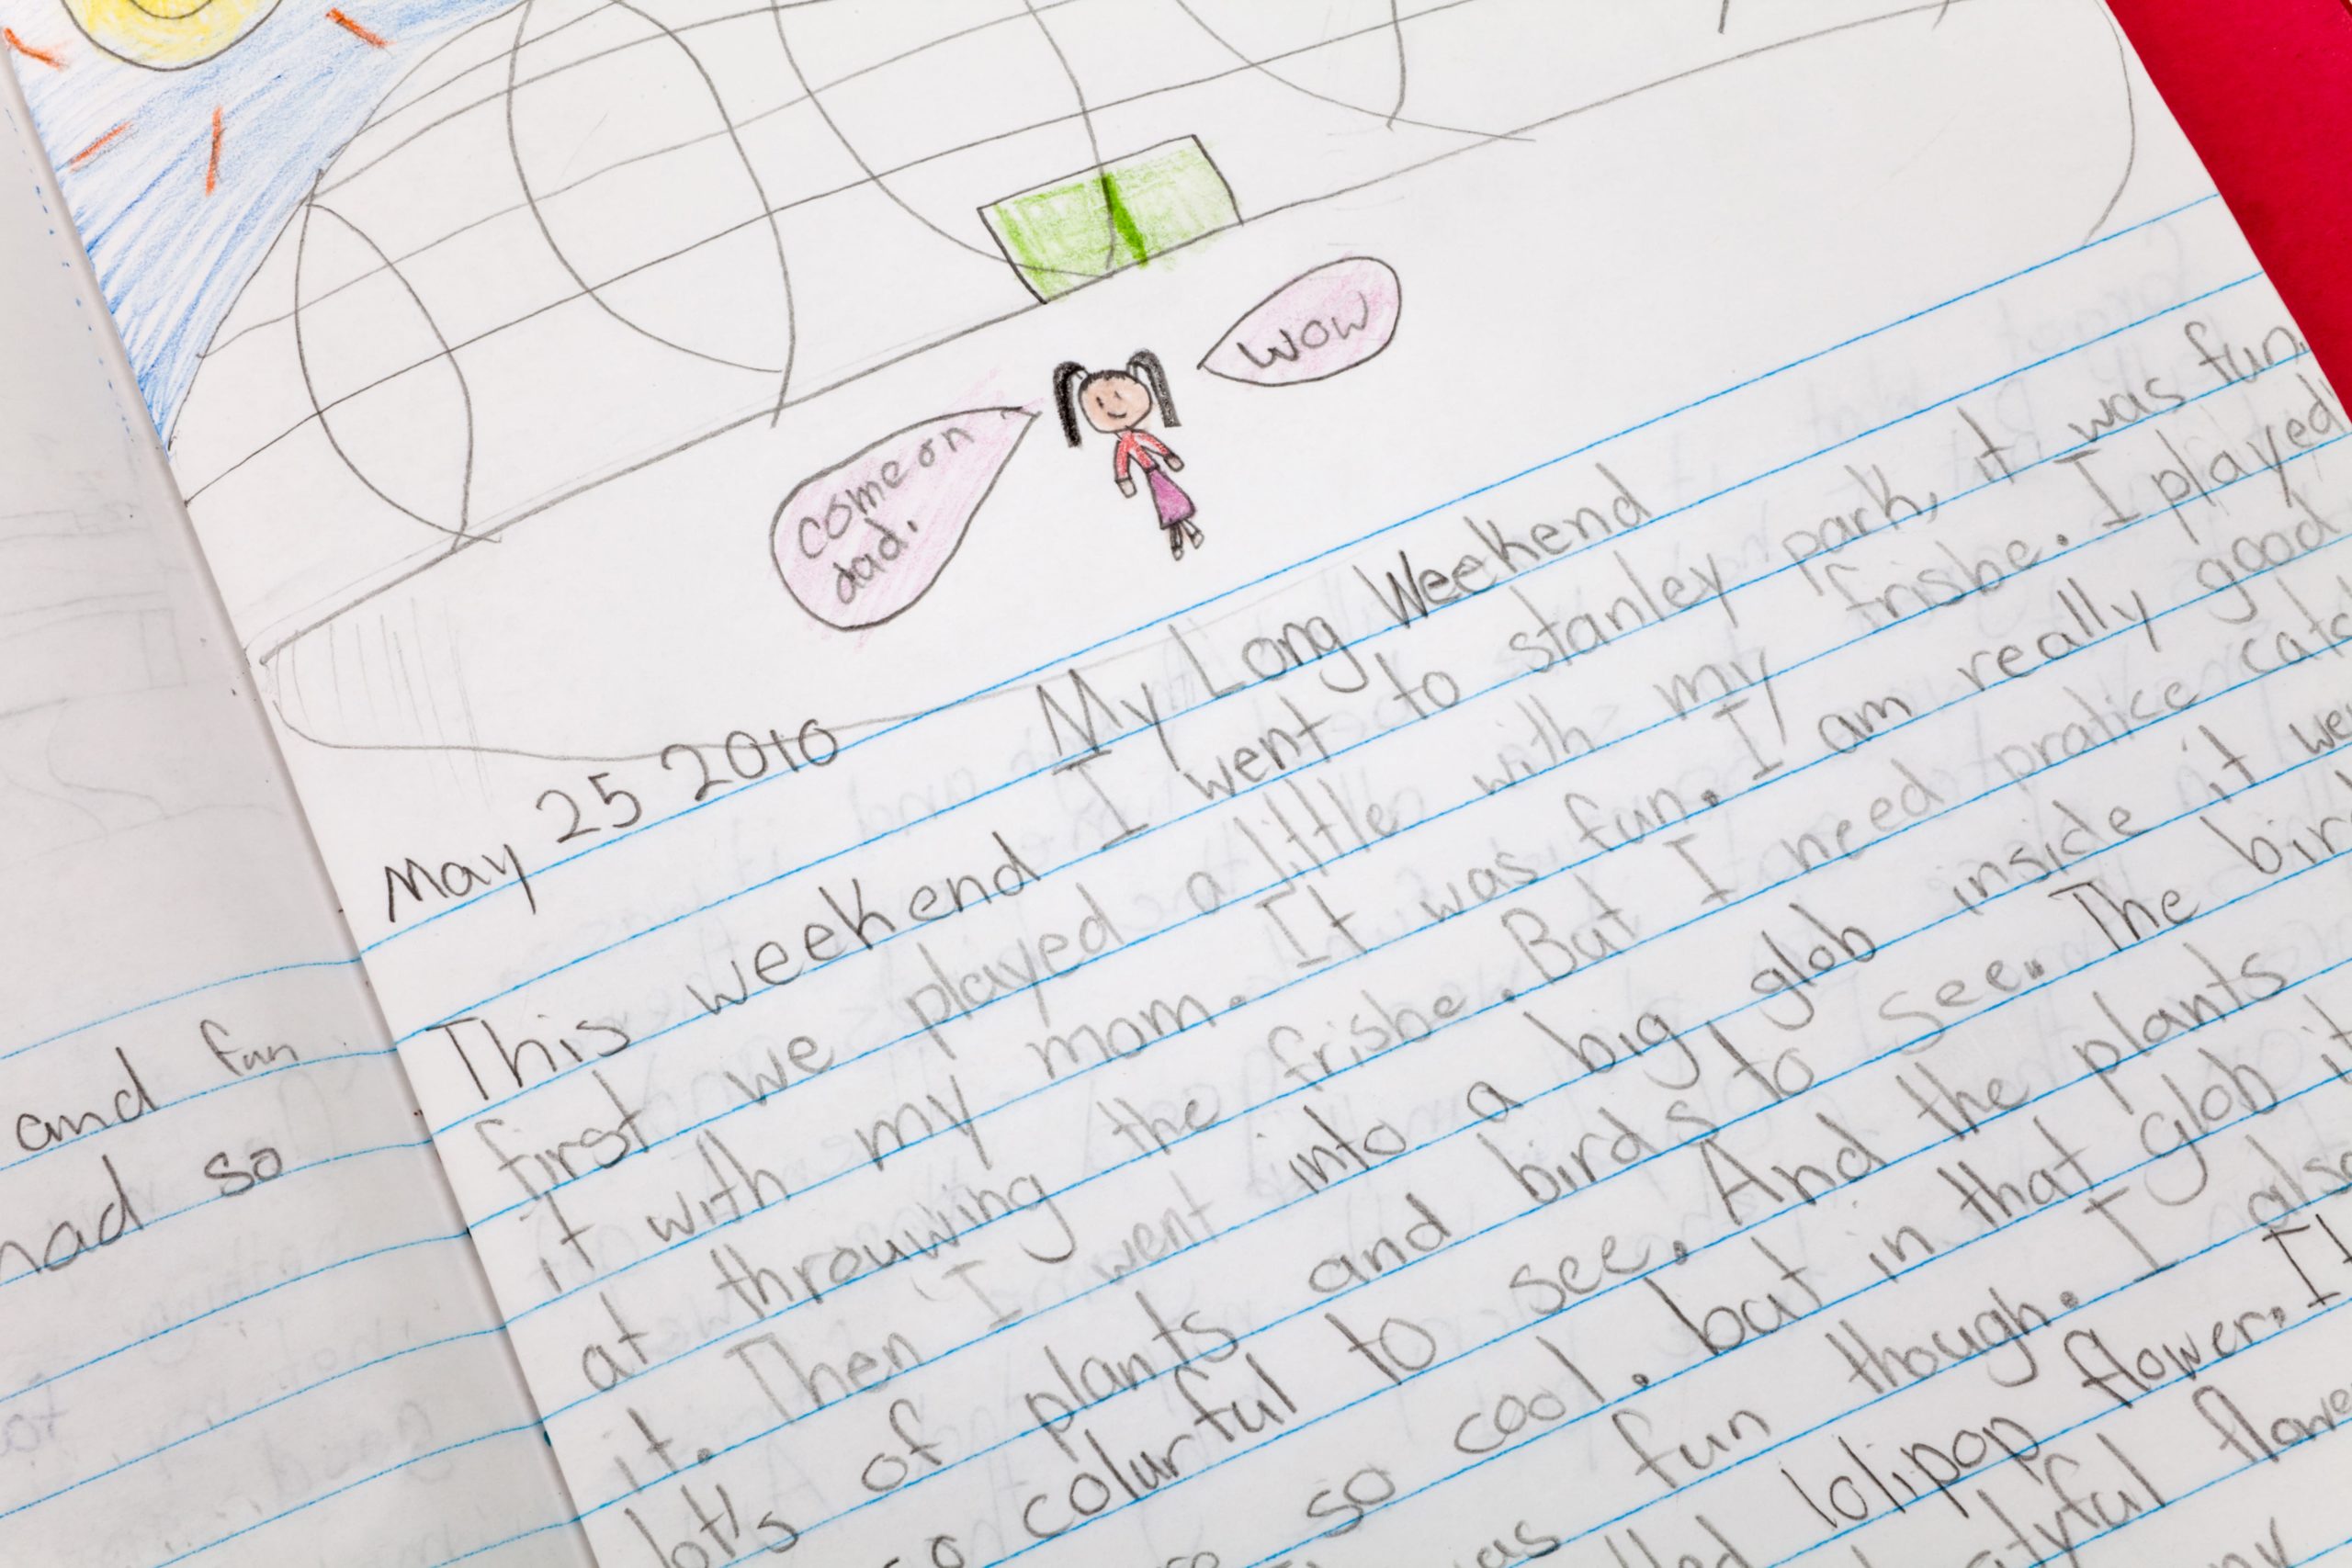 wow
come on
dad.
May 25 2010
My Long Weekend
This weekend I went to stanley park, it was fun.
first we played a little with my frisbe. I played
it with my mom. It was fun. I am really good
at throuwing the frisbe. But I need pratice
it. Then I went into a big glob inside it
lot's of plants and birds to see. The
so colurful to see. And the plants
so cool. but in that glob it
fun though. I also
lolipop flower. It
and fun
had so